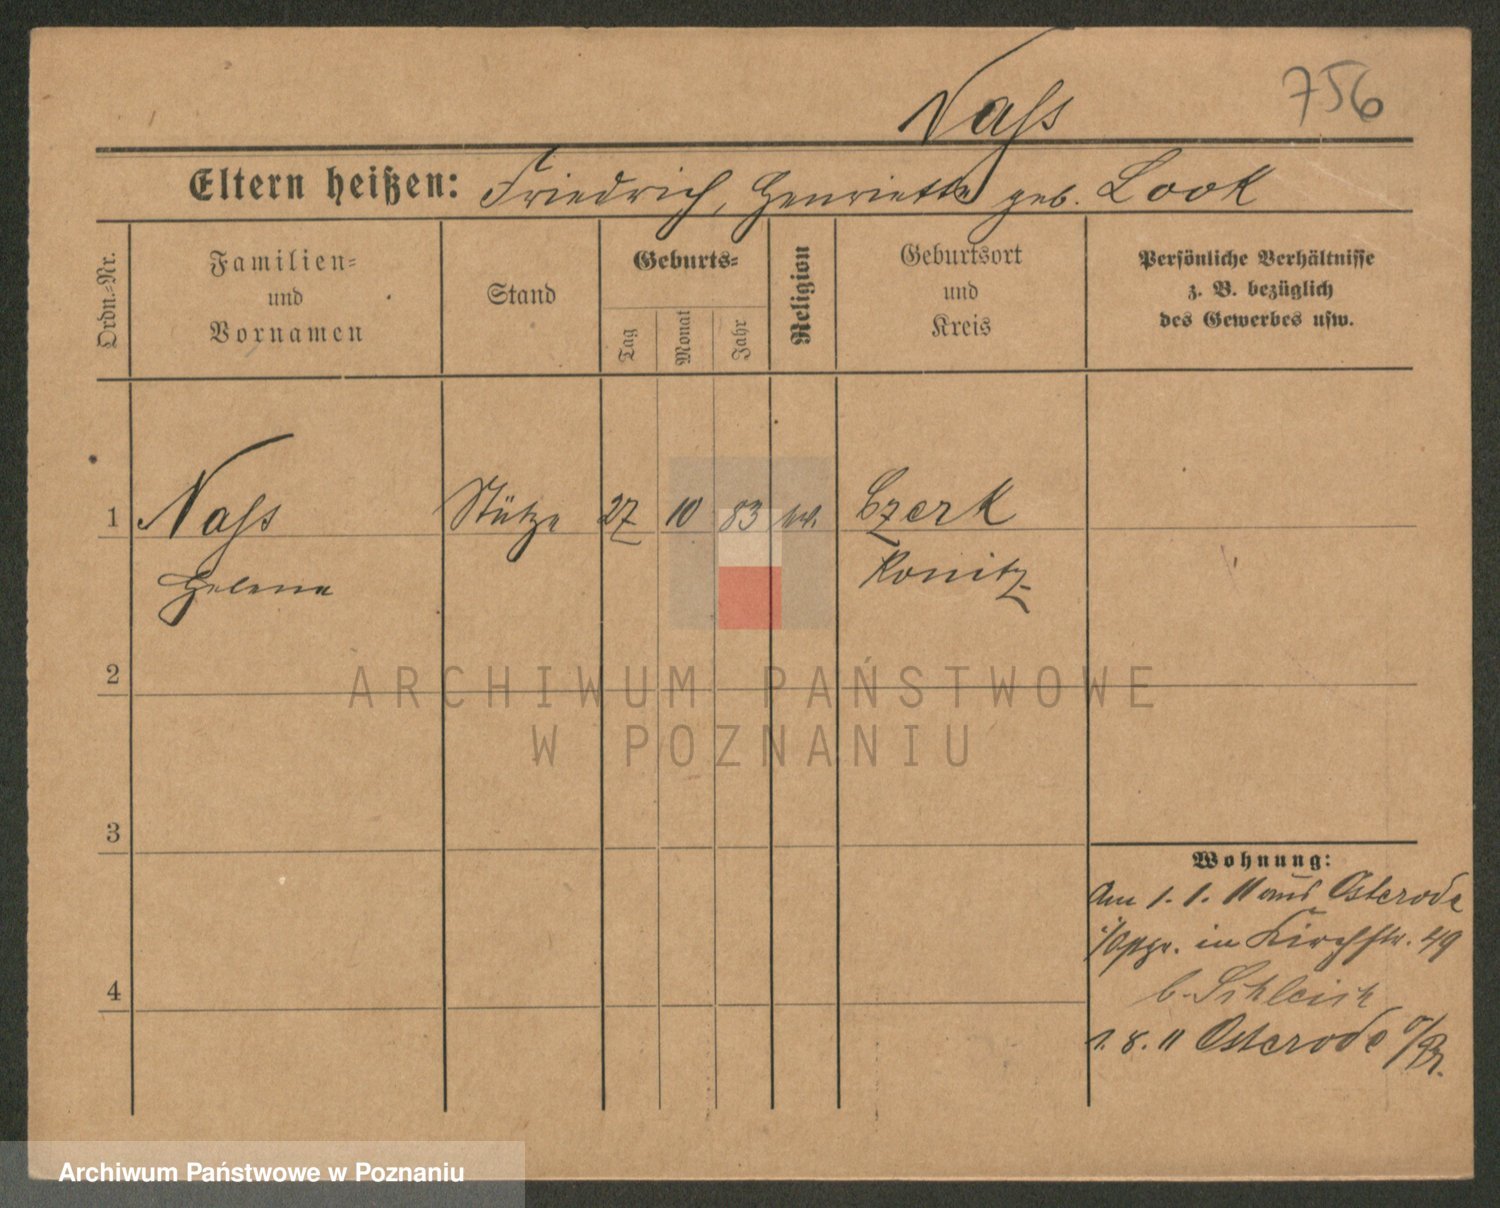 Naß
756
Eltern heißen: Friedrich, Henriette geb. Look
Ordn.-Nr.
Familien-
und
Vornamen
Stand
Geburts-
Tag
Monat
Jahr
Religion
Geburtsort
und
Kreis
Persönliche Verhältnisse
z. B. bezüglich
des Gewerbes usw.
1 Naß Stütze 27 10 83 ev. Czersk
Helene Konitz
2
ARCHIWUM PAŃSTWOWE
W POZNANIU
3
Wohnung:
Am 1. 1. 11 aus Osterode
i/Ospr. in Kirchstr. 49
4
b.
1. 8. 11 Osterode O/Pr.
Archiwum Państwowe w Poznaniu